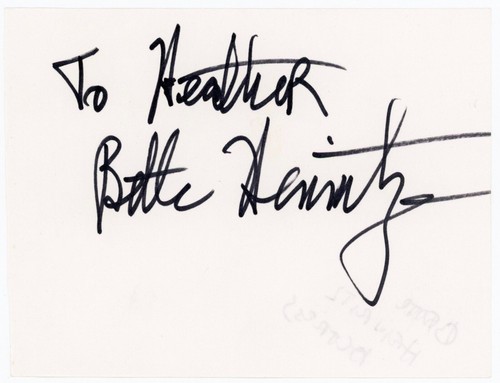 To Heather
Bette Henritze